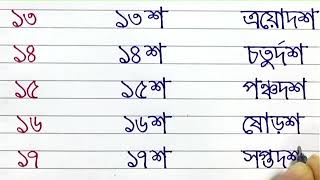 ১৩ ১৩ শ ত্রয়োদশ
১৪ ১৪ শ চতুর্দশ
১৫ ১৫ শ পঞ্চদশ
১৬ ১৬ শ ষোড়শ
১৭ ১৭ শ সপ্তদশ